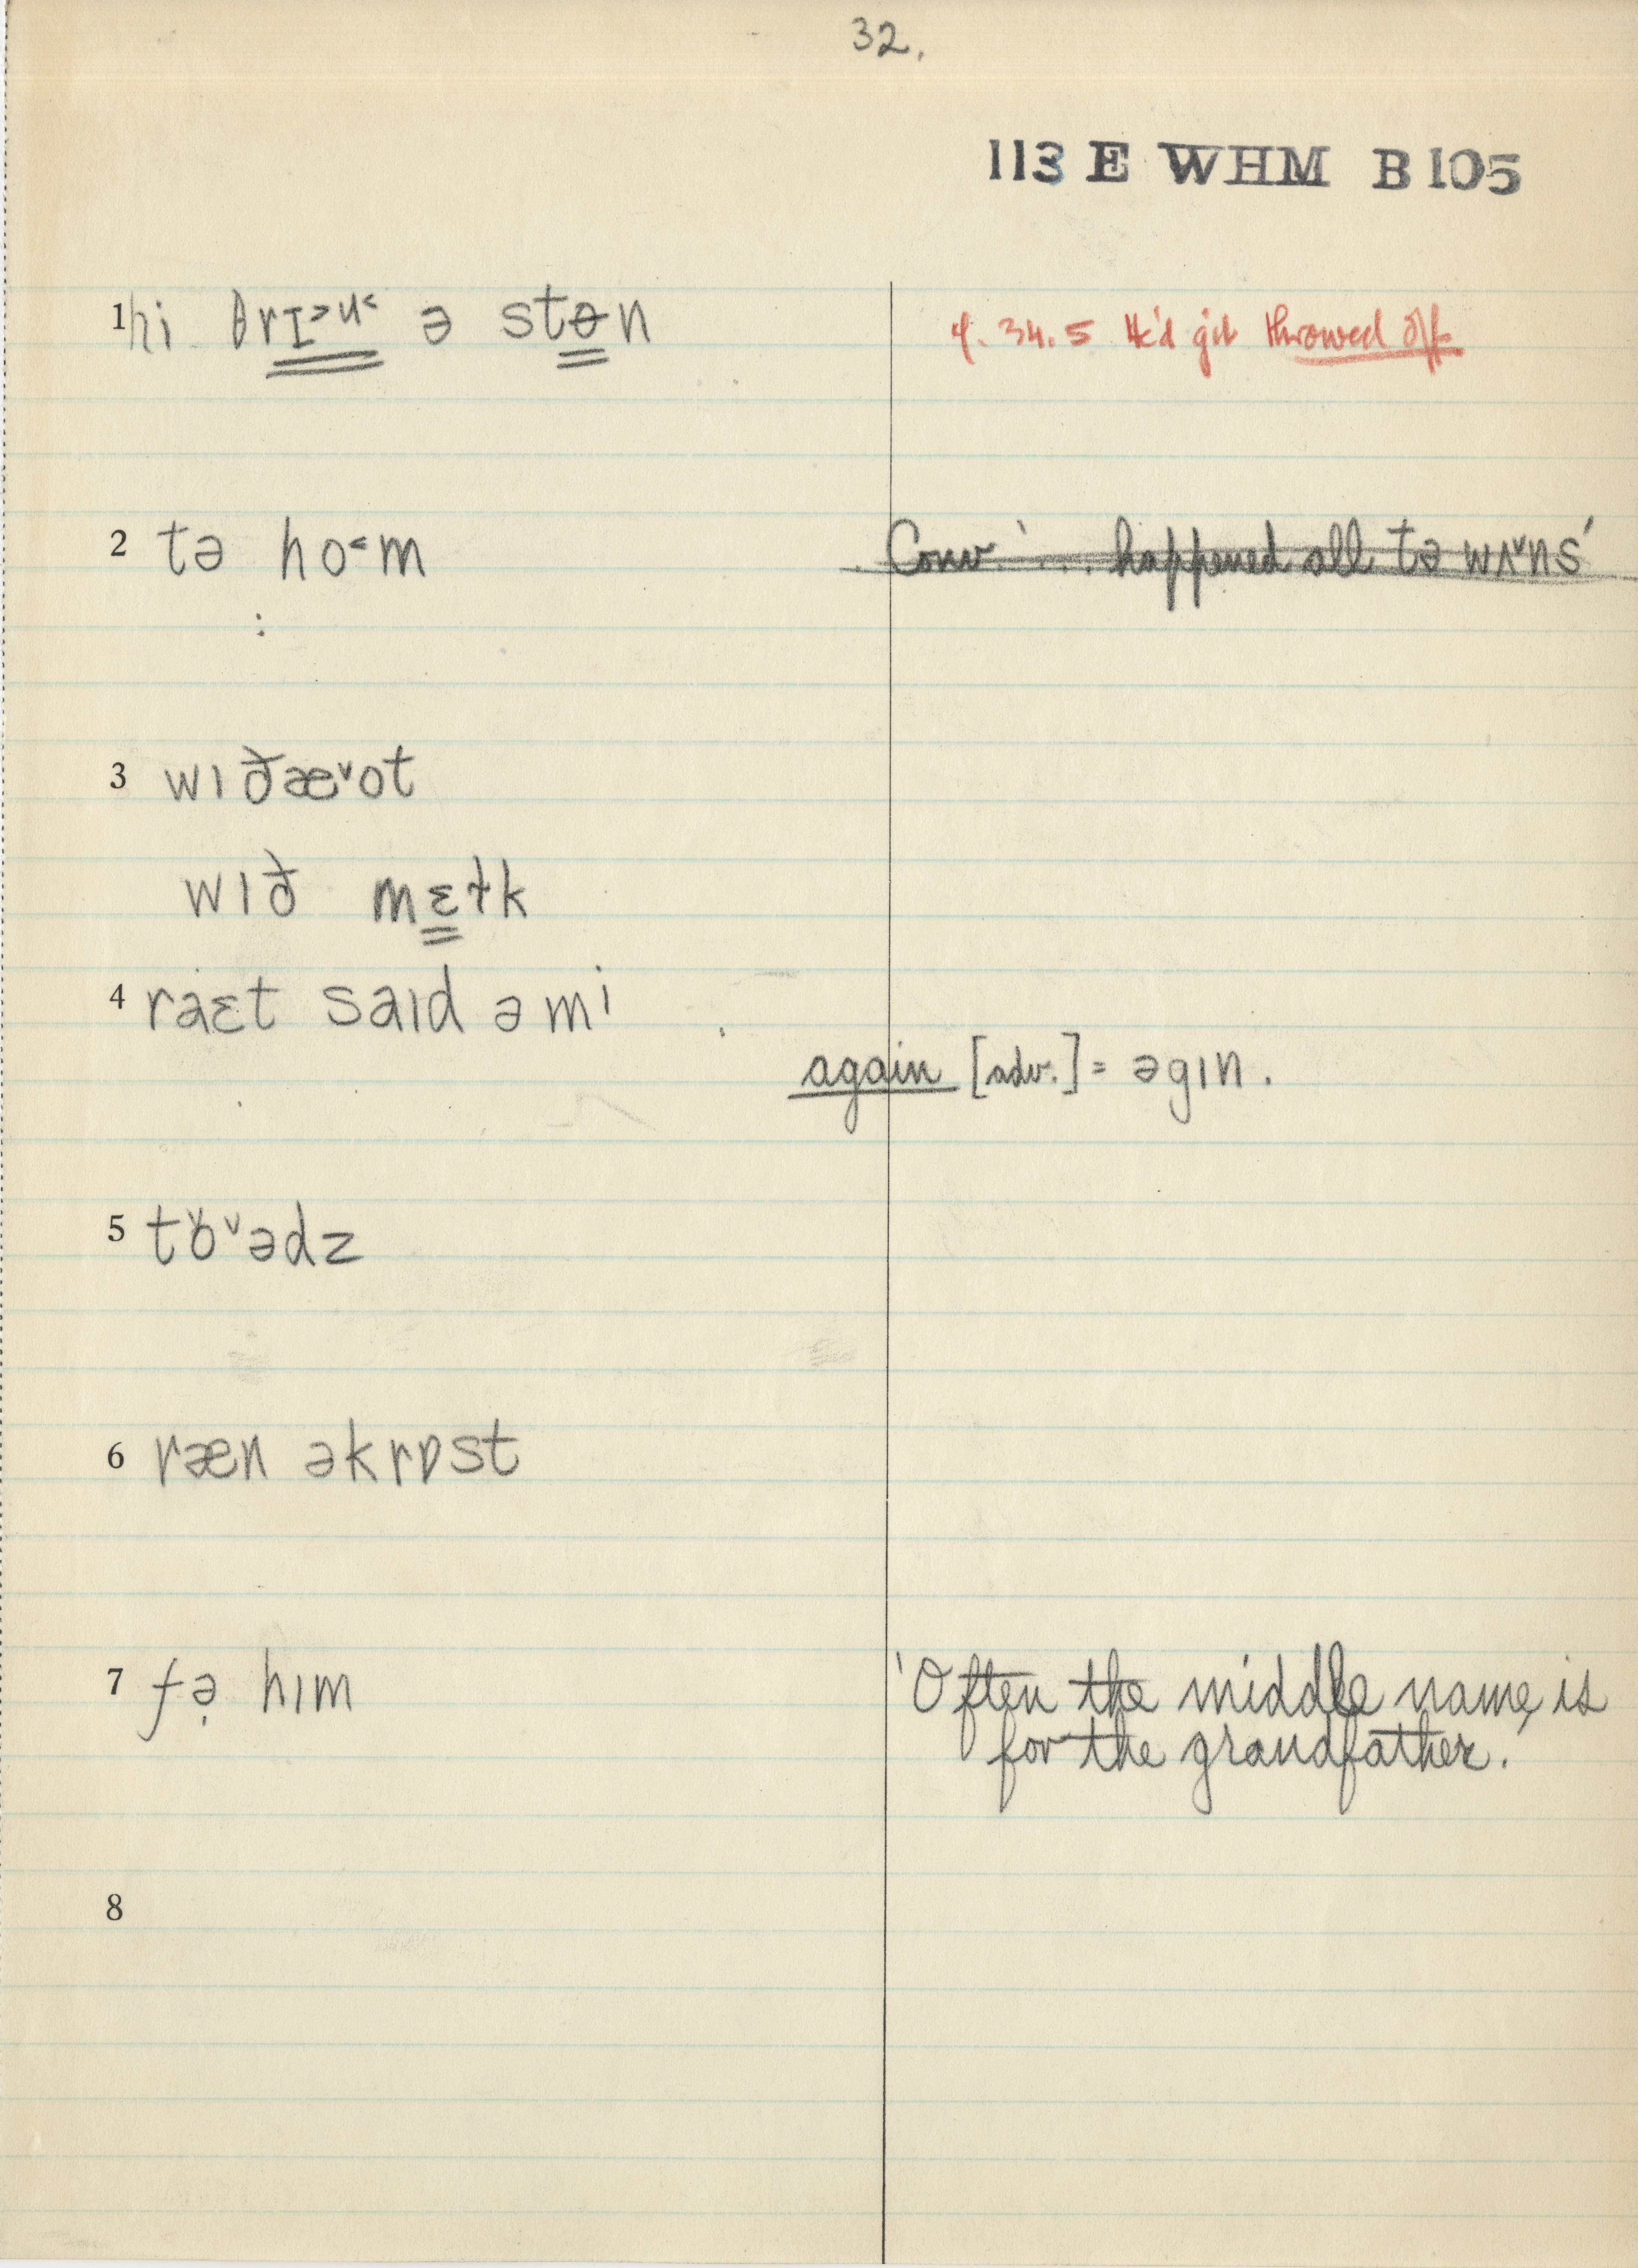 32.
113 E WHM B 105
1 hi θrɪ˃u˂ ə stɵn
cf. 34.5 He'd git throwed off
2 tə ho˂m
Conv '.... happened all tə wʌ˅ns'
3 wɪðæ˅ot
wɪð mɛɫk
4 raɛt saɪd ə mi
again [adv.] = əgɪn.
5 tɒ˅ədz
6 ræn əkrɒst
7 fə̣ hɪm
'Often the middle name is
for the grandfather.'
8